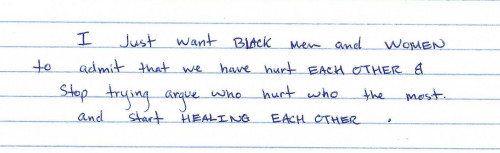 I Just want BLACK men and WOMEN
to admit that we have hurt EACH OTHER &
Stop trying argue who hurt who the most.
and start HEALING EACH OTHER .